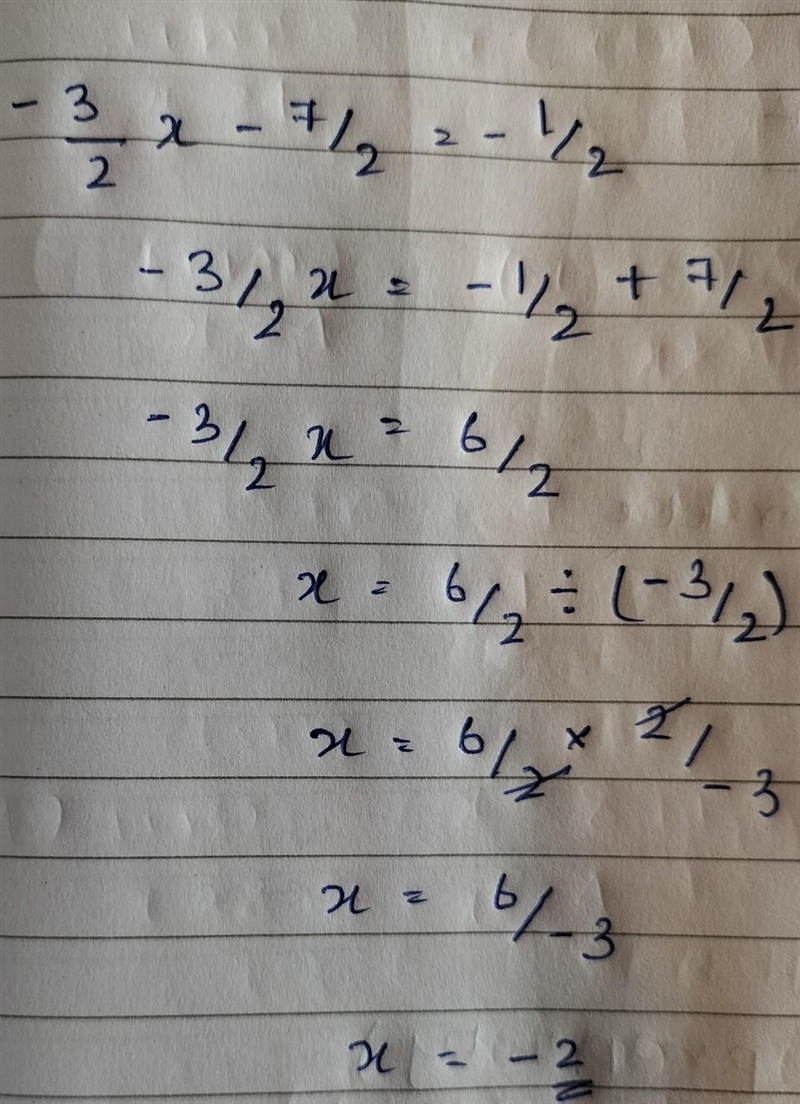 - 3/2 x - 7/2 = - 1/2
- 3/2 x = - 1/2 + 7/2
- 3/2 x = 6/2
x = 6/2 ÷ (- 3/2)
x = 6/2 × 2/-3
x = 6/-3
x = - 2